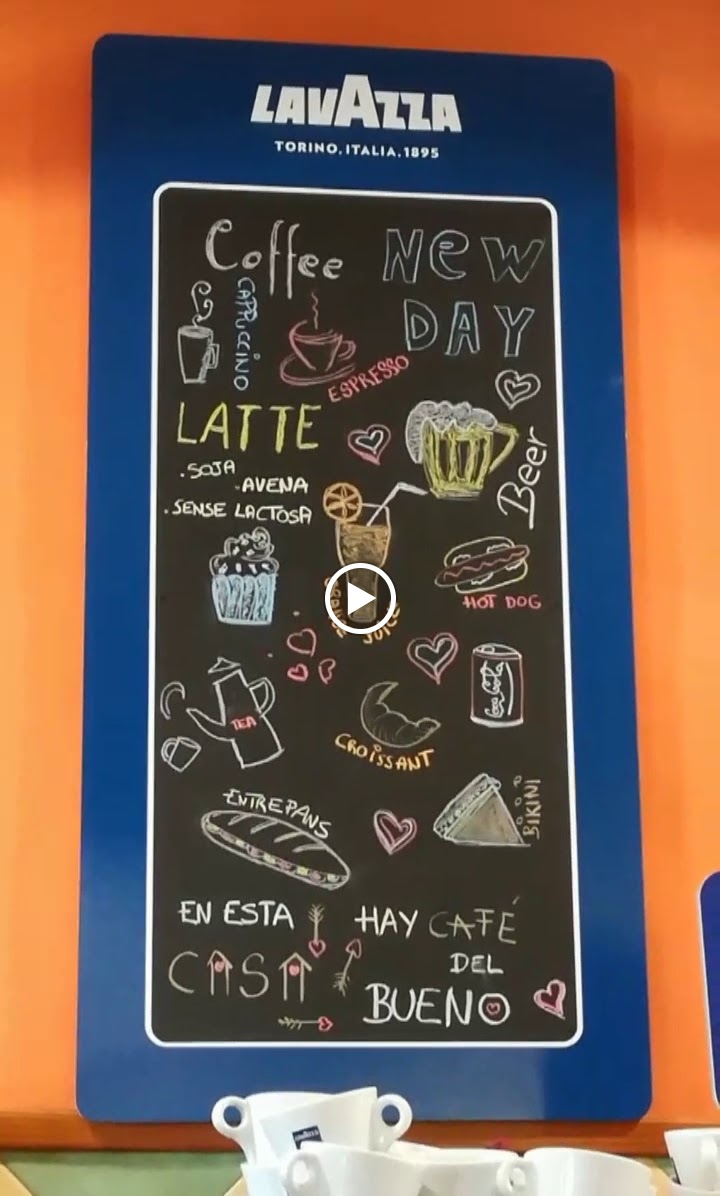 LAVAZZA
TORINO.ITALIA.1895
Coffee
NEW
DAY
CAPPUCCINO
ESPRESSO
LATTE
.SOJA
.AVENA
.SENSE LACTOSA
Beer
JUICE
HOT DOG
TEA
Coca Cola
CROISSANT
ENTREPANS
BIKINI
EN ESTA
CASA
HAY CAFÉ
DEL
BUENO
LAVAZZA